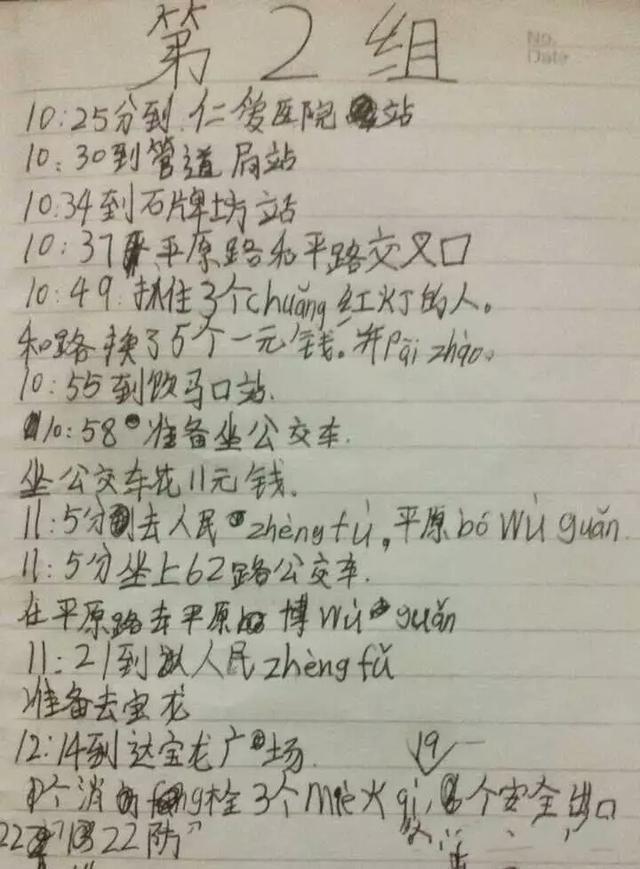 第2组
No.
Date
10:25分到仁爱医院站
10:30到管道局站
10:34到石牌坊站
10:37平原路和平路交叉口
10:49抓住3个chuǎng红灯的人。
和路换了5个一元钱。并Pāi zhào。
10:55到饮马口站.
10:58准备坐公交车.
坐公交车花11元钱.
11:5分去人民zhèng fǔ,平原bó wù guǎn.
11:5分坐上62路公交车.
在平原路去平原博wù guǎn
11:21到人民zhèng fǔ
准备去宝龙
12:14到达宝龙广场.
19
个消fáng栓3个miè火qì,个安全出口